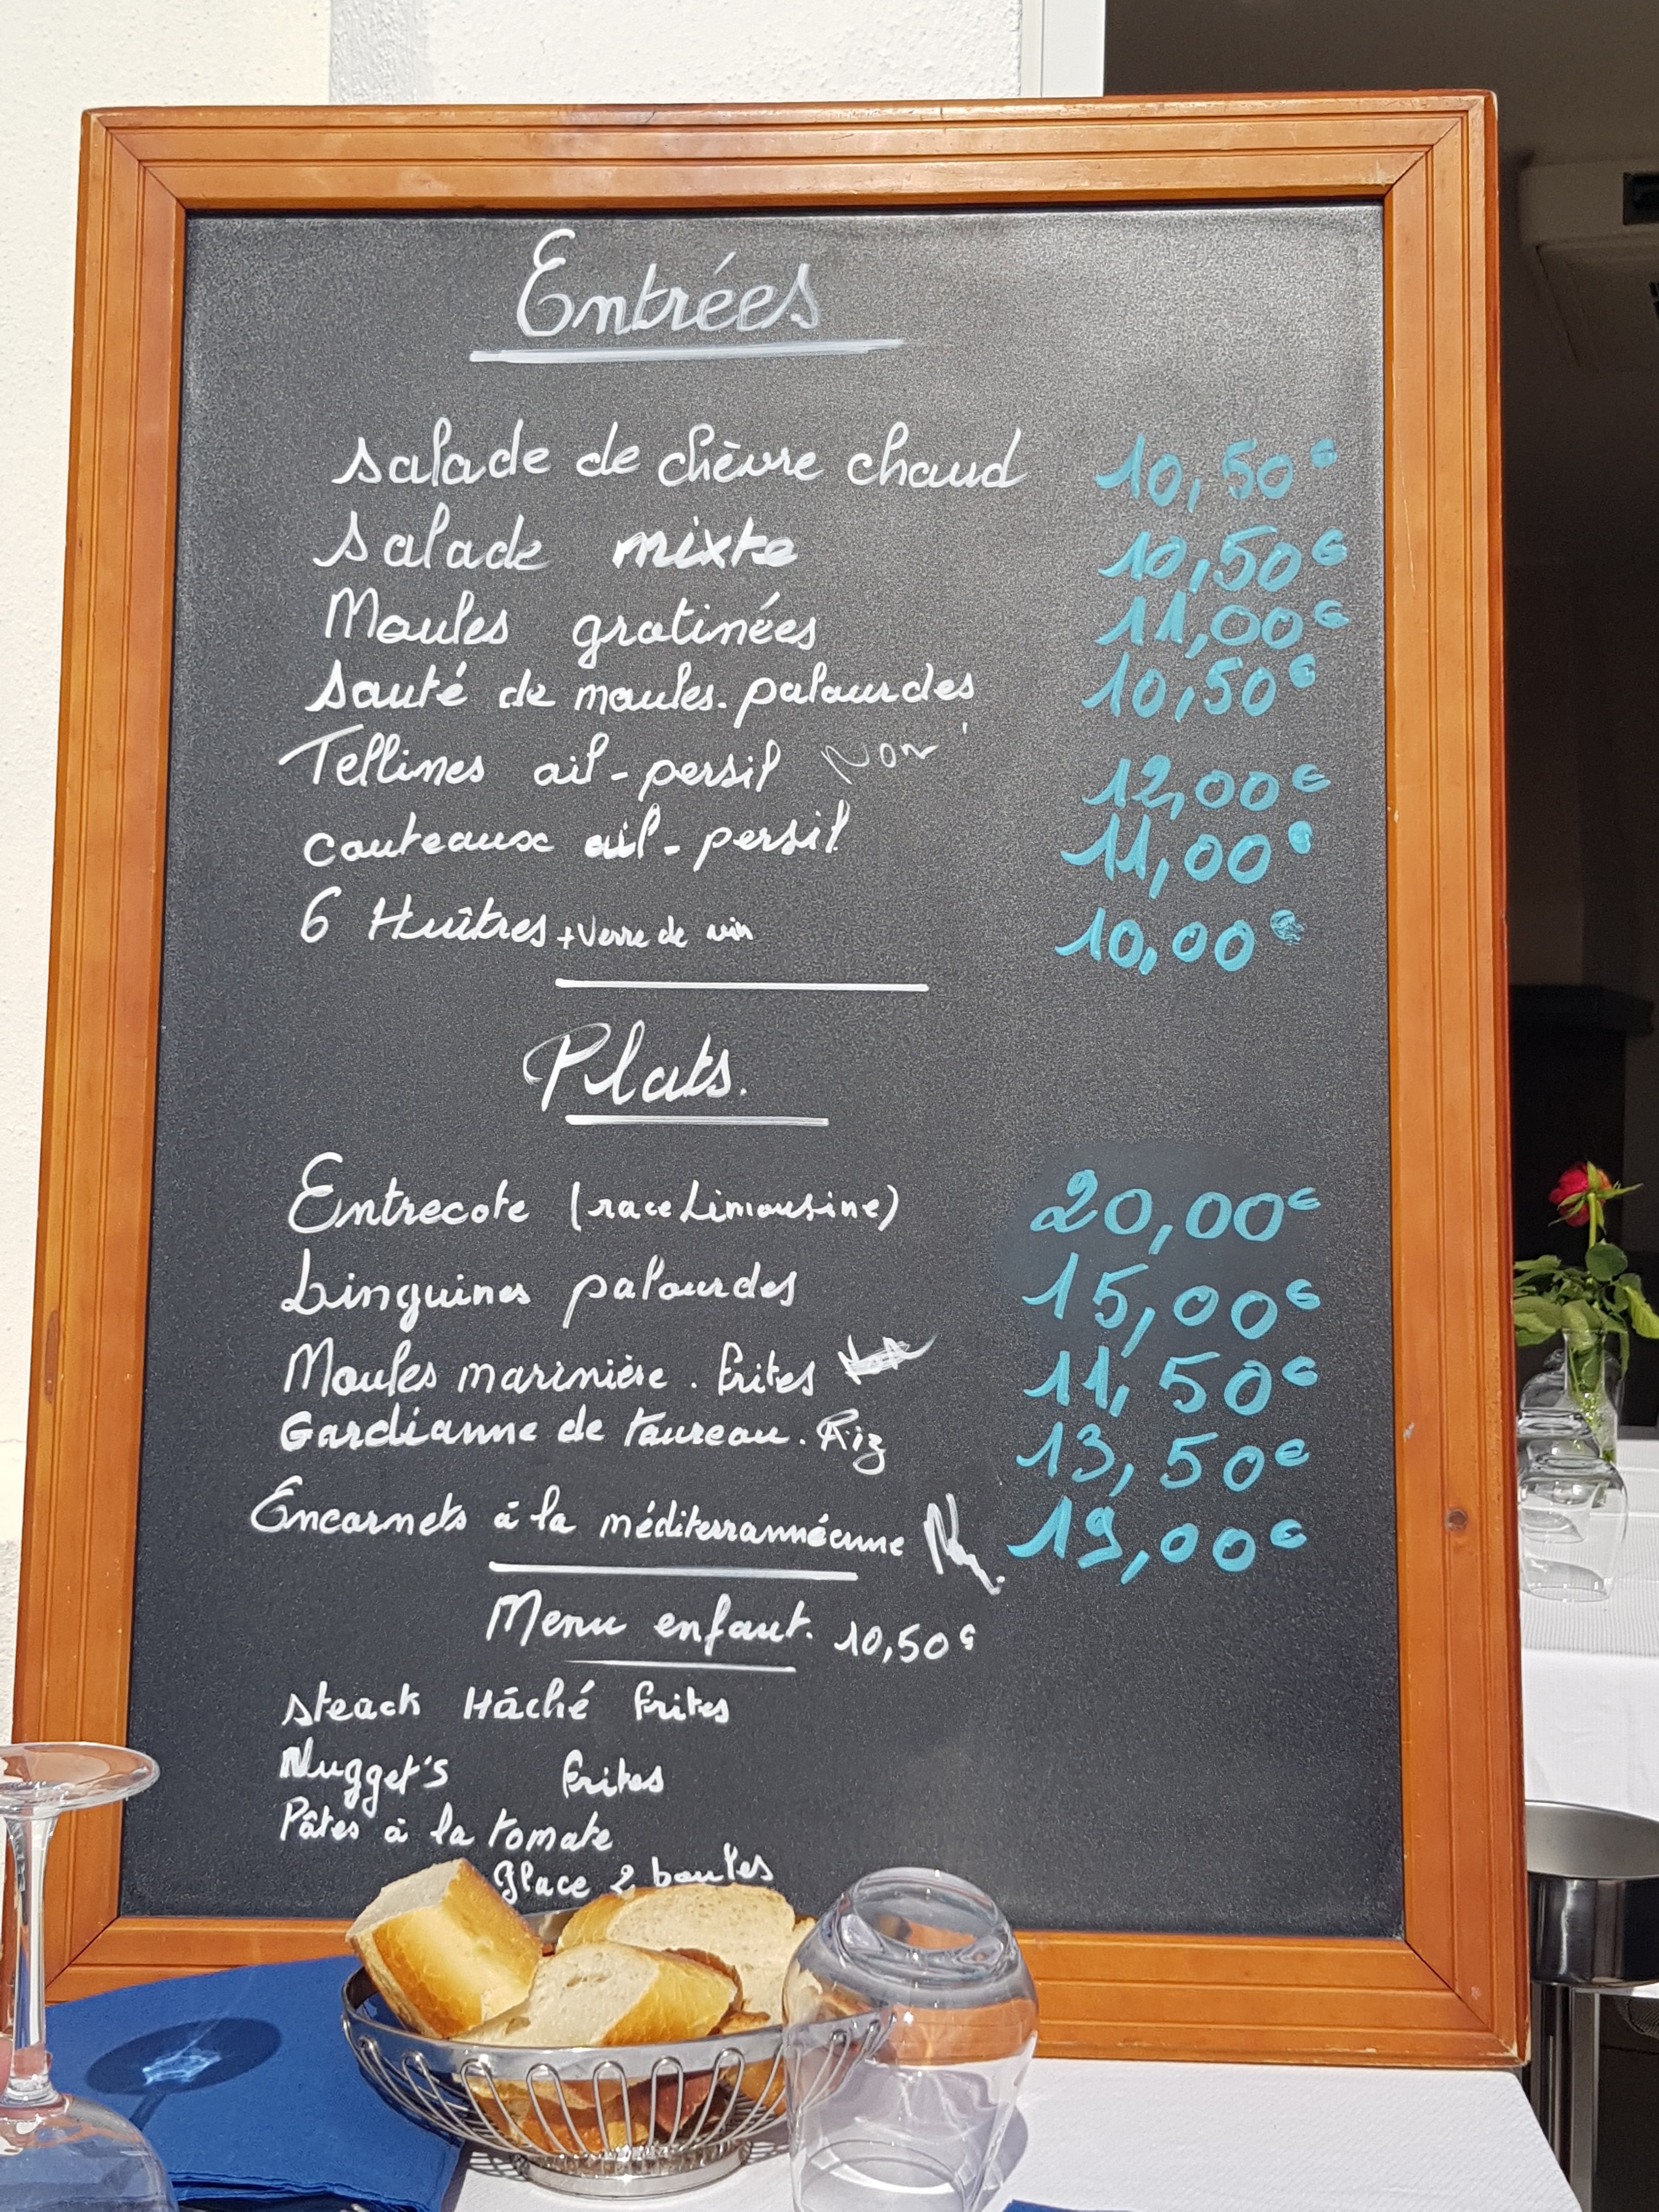 Entrées
Salade de chèvre chaud 10,50€
Salade mixte 10,50€
Moules gratinées 11,00€
Sauté de moules. palourdes 10,50€
Tellines ail-persil Non 12,00€
couteaux ail-persil 11,00€
6 Huîtres + Verre de vin 10,00€
Plats.
Entrecote (race Limousine) 20,00€
Linguines palourdes 15,00€
Moules marinière. frites 11,50€
Gardianne de taureau. Riz 13,50€
Encornets à la méditerrannéenne 19,00€
Menu enfant. 10,50€
steack Hâché frites
Nugget's frites
Pâtes à la tomate
Glace 2 boules